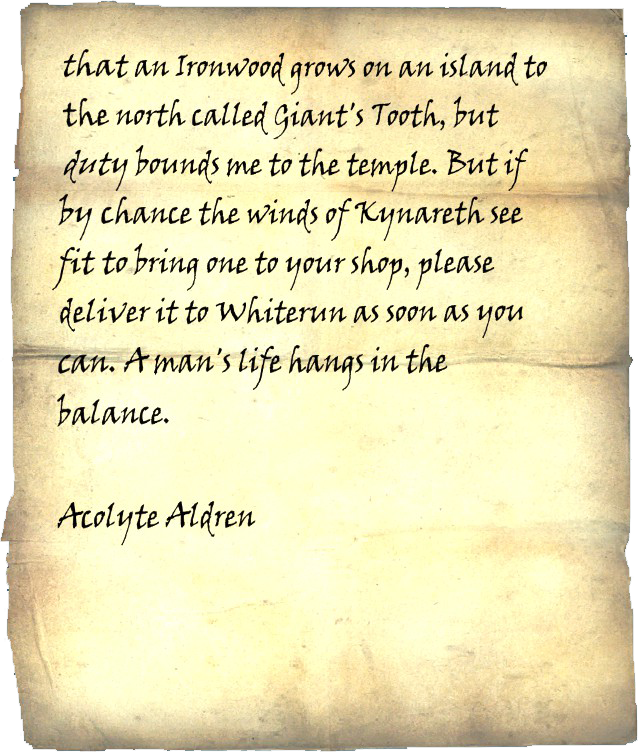 that an Ironwood grows on an island to
the north called Giant's Tooth, but
duty bounds me to the temple. But if
by chance the winds of Kynareth see
fit to bring one to your shop, please
deliver it to Whiterun as soon as you
can. A man's life hangs in the
balance.
Acolyte Aldren